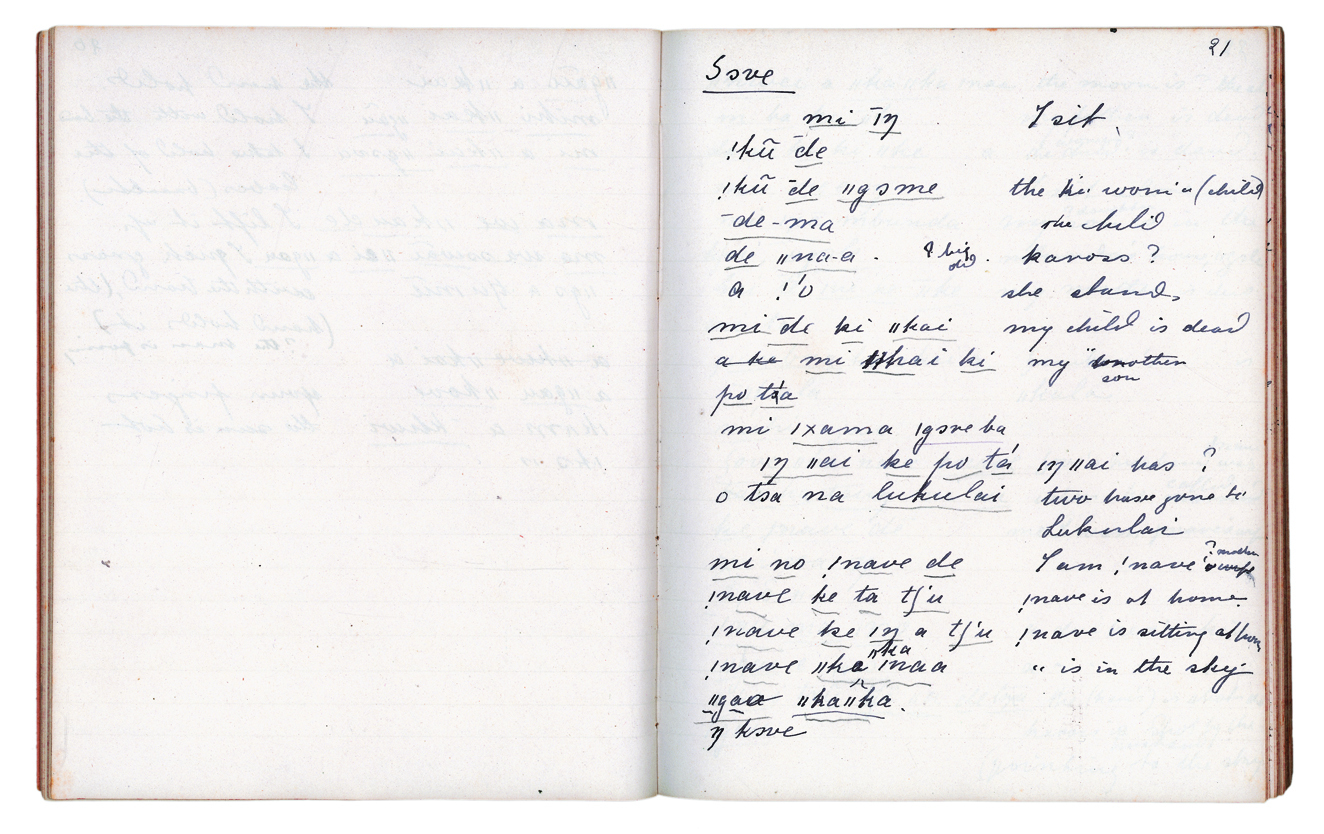 21
Ssve
mi īŋ I sit
!kũ de
!kũ de ǁgsme the woman (child)
de-ma she child
de ǁna-a . ? big old . kaross ?
a !'o she stands
mi de ki ǁkai my child is dead
a ke mi ǁkai ki my mother son
po tsa
mi ǀxama ǀgsve ba
ǀŋ ǁai ke po tá ǀŋ ǁai has ?
o tsa na lukulai two have gone to
Lukulai
mi no !nave de I am !nave ? mother o wife
!nave ke ta tʃ'u !nave is at home
!nave ke ǀŋ a tʃ'u !nave is sitting at home
!nave ǁka ǁka !naa " is in the sky
ǁgaa ǁkaǁka .
ŋ ksve